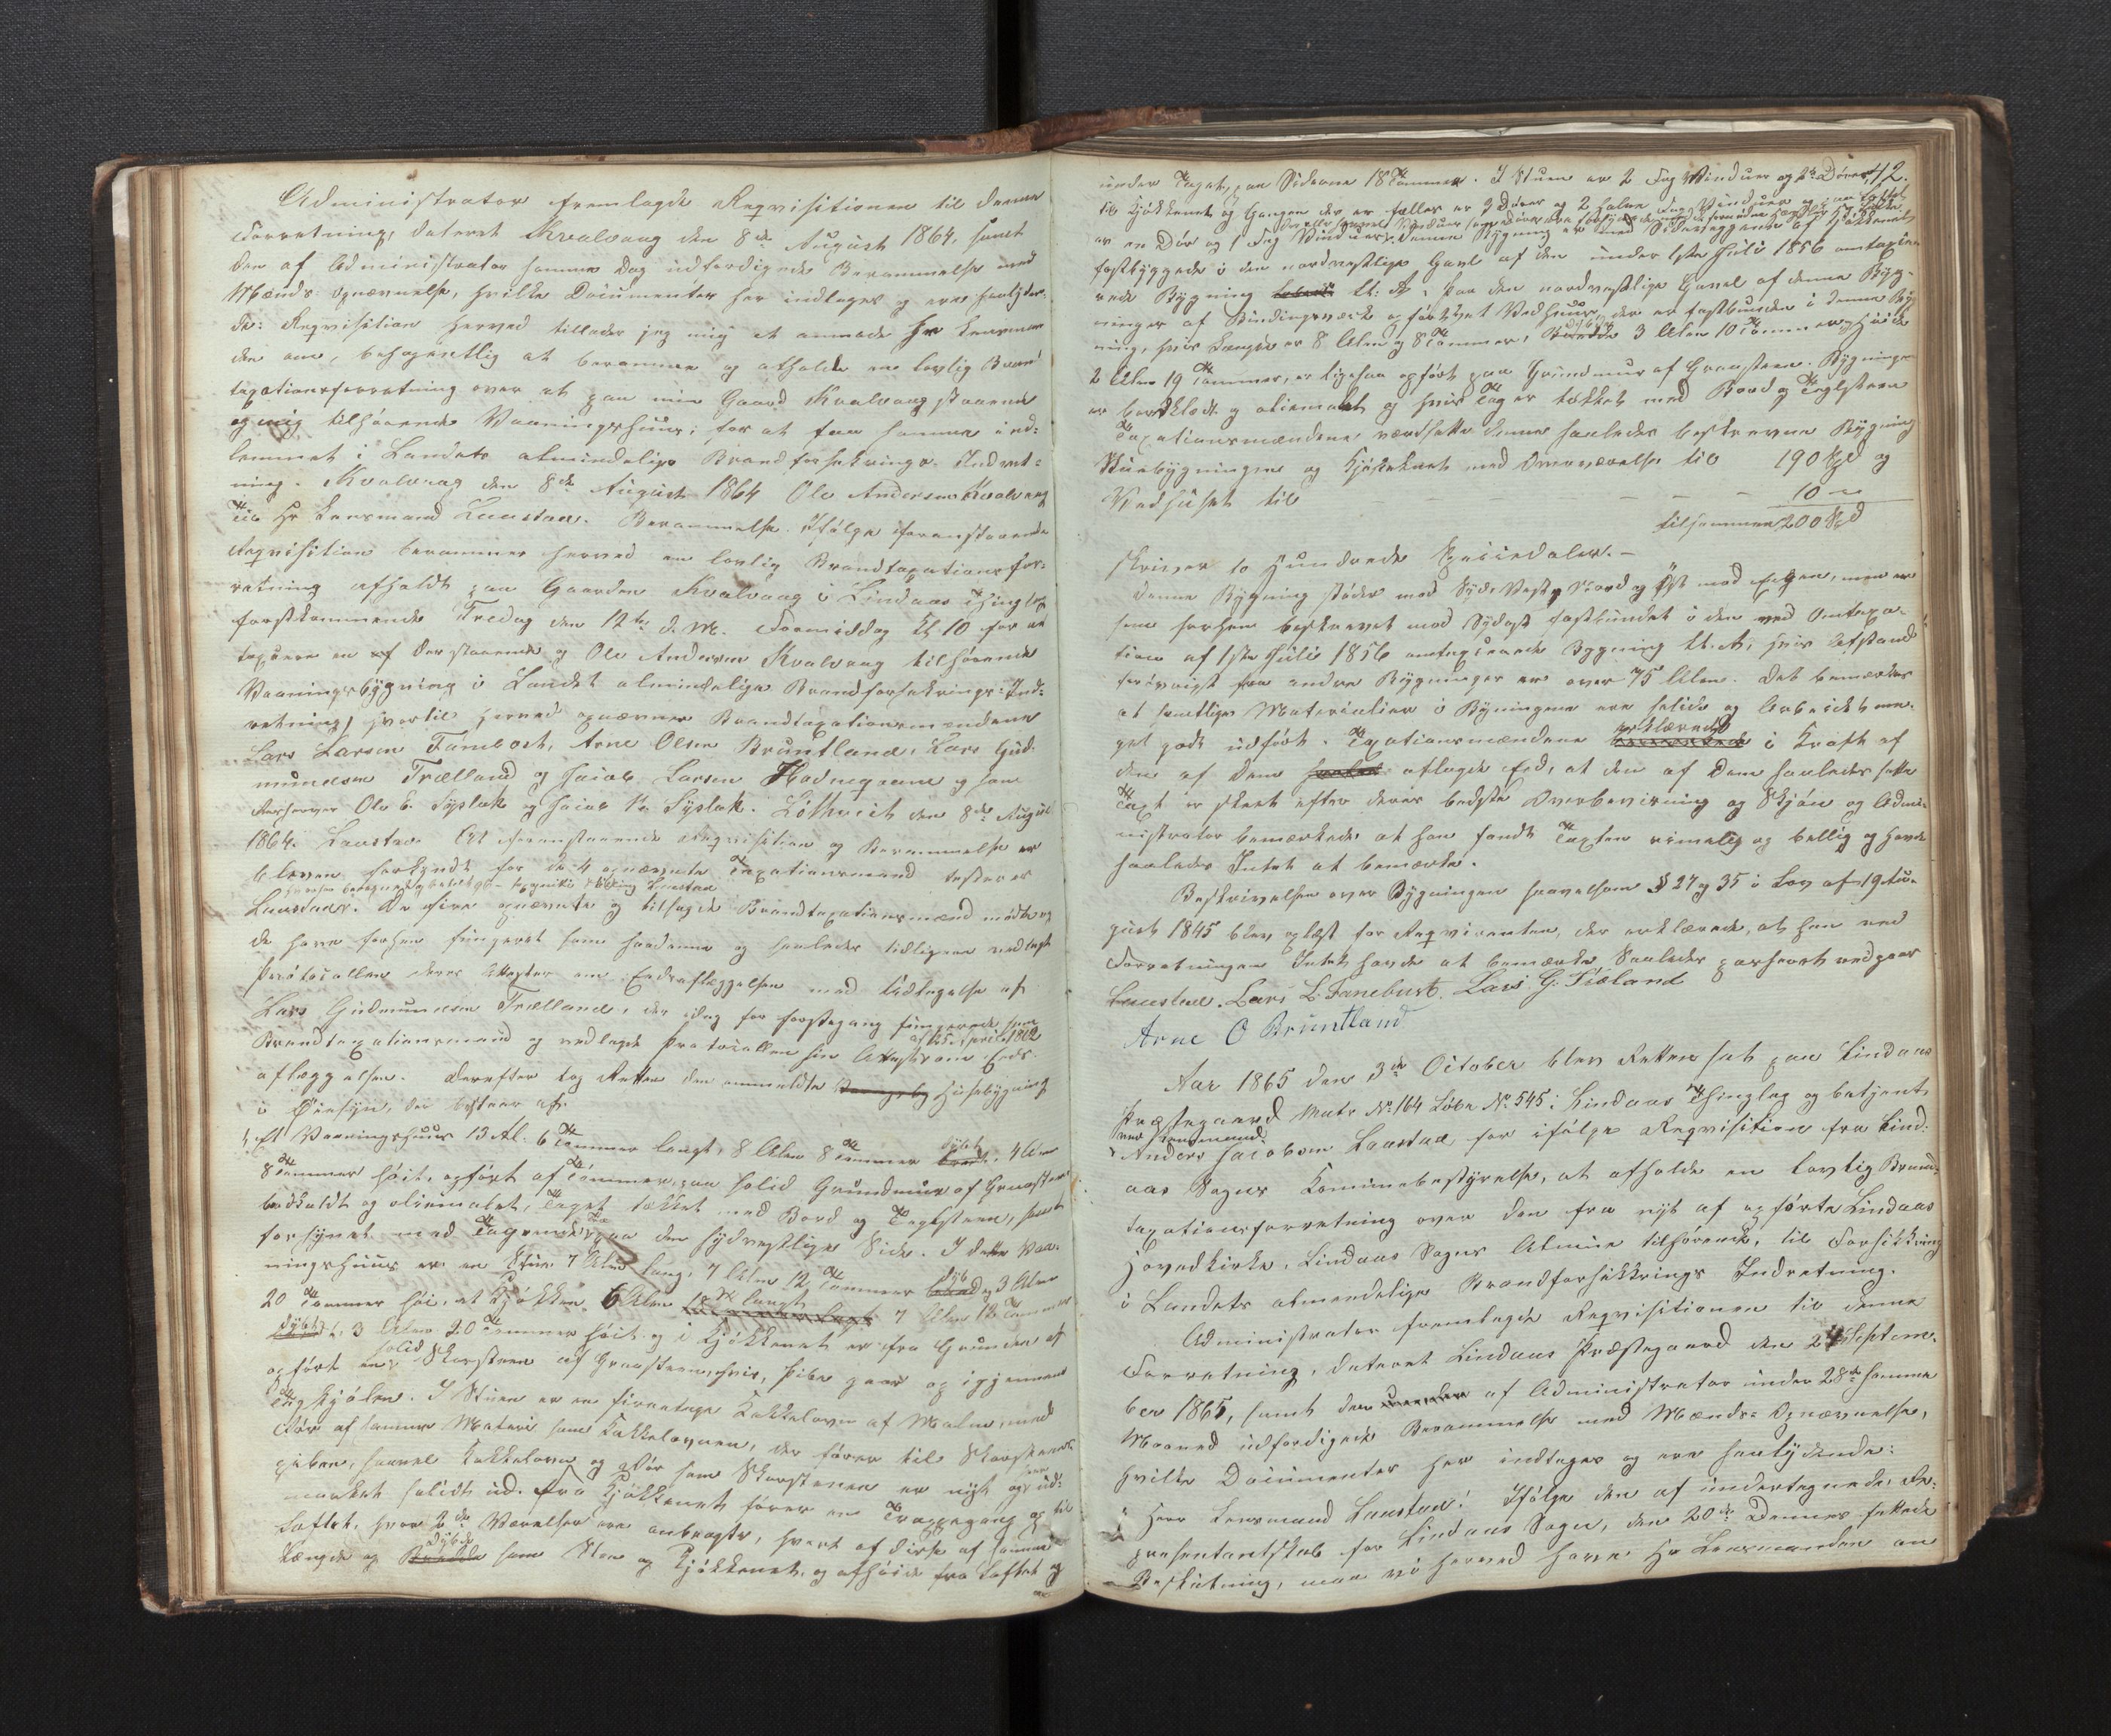 Administrator fremlagde Reqvisitionen til denne
Forretning, dateret Kvalvaag den 8de August 1864, samt
den af Administrator samme Dag udfærdigede Berammelse med
Mænds Opnævnelse, hvilke Documenter her indtages og ere saalyden-
de: Reqvisition Herved tillader jeg mig at anmode Hr Lensman-
den om, behageligt at beramme og afholde en lovlig Brand-
taxationsforretning over et paa min Gaard Kvalvaag staaende
og mig tilhørende Vaaningshuus, for at faa samme ind-
lemmet i Landets almindelige Brandforsikrings-Indret-
ning. Kvalvaag den 8de August 1864 Ole Andersen Kvalvaag
Til Hr Lensmand Laustad. Berammelse. Ifølge foranstaaende
Reqvisition berammes herved en lovlig Brandtaxationsfor-
retning afholdt paa Gaarden Kvalvaag i Lindaas Thinglag
førstkommende Fredag den 12te d. M. Formiddag Kl 10 for at
taxere en af der staaende og Ole Andersen Kvalvaag tilhørende
Vaaningsbygning i Landets almindelige Brandforsikrings-Ind-
retning, hvortil herved opnævnes Brandtaxationsmændene
Lars Larsen Fanebost, Arne Olsen Bruntland, Lars Gud-
mundsen Trælland og Jacob Larsen Hodneqvam og som
Reserver Ole E. Syslak og Jacob N. Syslak. Løthveit den 8de August
1864. Laustad. At foranstaaende Reqvisition og Berammelse er
bleven forkyndt for de 4 opnævnte Taxationsmænd testerer
Laustad. De fire opnævnte og tilsagde Brandtaxationsmænd mødte og
de have forhen fungeret som saadanne og saaledes tidligere vedlagt
Protocollen deres Attester om Edsaflæggelsen med Undtagelse af
Lars Gudmundsen Trælland, der idag for første gang fungerede som
Brandtaxationsmand og vedlagde Protocollen sin Attest af 25 April 1862 om Eds-
aflæggelsen. Derefter tog Retten den anmeldte Huusebygning
i Øiesyn, der bestaaer af:
1, Et Vaaningshuus 13 Al: 6 Tommer langt, 8 Alen 8 Tommer dybt, 4 Alen
8 Tommer høit, opført af Tømmer, paa solid Grundmuur af Graasteen
bordklædt og oliemalet, Taget tækket med Bord og Teglsteen, samt
forsynet med Tagrende paa den sydvestlige Side. I dette Vaa-
ningshuus er en Stue 7 Alen lang, 7 Alen 12 Tommer dyb og 3 Alen
20 Tommer høi, et Kjøkken 6 Alen langt 7 Alen 12 Tommer
dybt, 3 Alen 20 Tommer høit og i Kjøkkenet er fra Grunden af
opført en solid Skorsteen af Graasteen, hvis Pibe gaar op igjennem
Tagkjølen. I Stuen er en firetages Kakkelovn af Malm, med
Rør af samme Materie som Kakkelovnen, der fører til Skorsteens
piben, saavel Kakkelovn og Rør som Skorstenen er nyt og seer ud-
mærket solidt ud. Fra Kjøkkenet fører en Trappegang op til
Loftet, hvor 2de Værelser ere anbragte, hvert af disse af samme
Længde og Dybde som Stue og Kjøkkenet, og af høide fra Loftet og
under Taget, paa Siderne 18 Tommer. I Stuen er 2 Fag Vinduer og 2de Døre, 112.
til Kjøkkenet og Gangen der er fælles er 3 Døre og 2 halve Fag Vinduer og paa Loftet
er en Dør og 1 Fag Vinduer. Denne Bygning er med Sidevæggene af Kjøkkenet
fastbyggede i den nordvestlige Gavl af den under 1ste Juli 1856 omtaxe-
rede Bygning Lt: A. Paa den nordvestlige Gavel af denne Byg-
ning, hvis Længde er 8 Alen og 8 Tommer, dybde 3 Alen 10 Tommer, Høide
2 Alen 19 Tommer, er ligesaa opført paa Grundmuur af Graasteen. Bygningen
er bordklædt og oliemalet og hvis Tag er tækket med Bord og Teglsteen
Taxationsmændene værdsatte denne saaledes beskrevne Bygning
Stuebygningen og Kjøkkenet med Overværelse til 190 Spd og
Vedhuset til — — — — 10 "
tilsammen 200 Spd
skriver to Hundrede Speciedaler. —
Denne Bygning støder mod Syd, Vest, Nord og Øst mod Engen, men er
som forhen beskrevet mod Sydost fastbundet i den ved Omtaxa-
tion af 1ste Juli 1856 omtaxerede Bygning Lt. A, hvis Afstand
forøvrigt fra andre Bygninger er over 75 Alen. Det bemærkes
at samtlige Materialier i Bygningen ere solide og Arbeidet me-
get godt udført. Taxationsmændene erklærede i Kraft af
den af dem aflagte Eed, at den af dem saaledes satte
Taxt er skeet efter deres bedste Overbeviisning og Skjøn og Admi-
nistrator bemærkede at han fandt Taxten rimelig og billig og havde
saaledes Intet at bemærke.
Beskrivelsen over Bygningen saavelsom § 27 og 35 i Lov af 19 Au-
gust 1845 blev oplæst for Reqvirenten, der erklærede, at han ved
Forretningen Intet havde at bemærke Saaledes passeret vedgaaer
Laustad. Lars L. Fanebust. Lars G. Træland
Arne O Bruntland
Aar 1865 den 3de October blev Retten sat paa Lindaas
Præstegaard Matr No 164 Løbe No 545 i Lindaas Thinglag og betjent
ved Lensmand
Anders Jacobsen Laustad, for ifølge Reqvisition fra Lind-
aas Sogns Kommunebestyrelse, at afholde en lovlig Brand-
taxationsforretning over den fra nyt af opførte Lindaas
Hovedkirke, Lindaas Sogns Almue tilhørende, til Forsikkring
i Landets almindelige Brandforsikkrings Indretning.
Administrator fremlagde Reqvisitionen til denne
Forretning, dateret Lindaas Præstegaard den 24 Septem-
ber 1865, samt den af Administrator under 28de samme
Maaned udfærdigede Berammelse med Mænds-Opnævnelse,
hvilke Documenter her indtages og ere saalydende:
Herr Lensmand Laustad! Ifølge den af undertegnede Re-
præsentantskab for Lindaas Sogn, den 20de dennes fattede
Beslutning, maa vi herved have Hr Lensmanden an